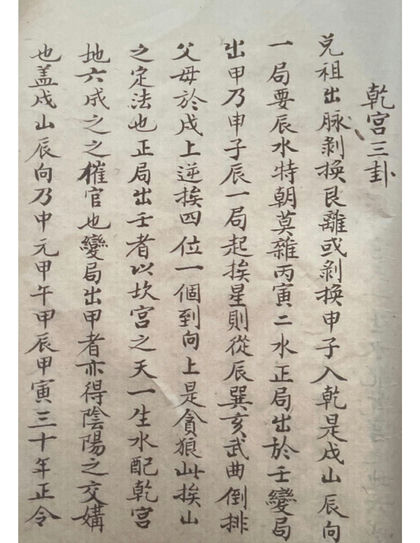 乾宫三卦
兑祖出脉剥换艮離或剥换申子入乾是戌山辰向
一局要辰水特朝莫雜丙寅二水正局出於壬變局
出甲乃申子辰一局起挨星則從辰巽亥武曲倒排
父母於戌上逆挨四位一個到向上是貪狼此挨山
之定法也正局出壬者以坎宫之天一生水配乾宫
地六成之之榷官也變局出甲者亦得陰陽之交媾
也盖戌山辰向乃中元甲午甲辰甲寅三十年正令